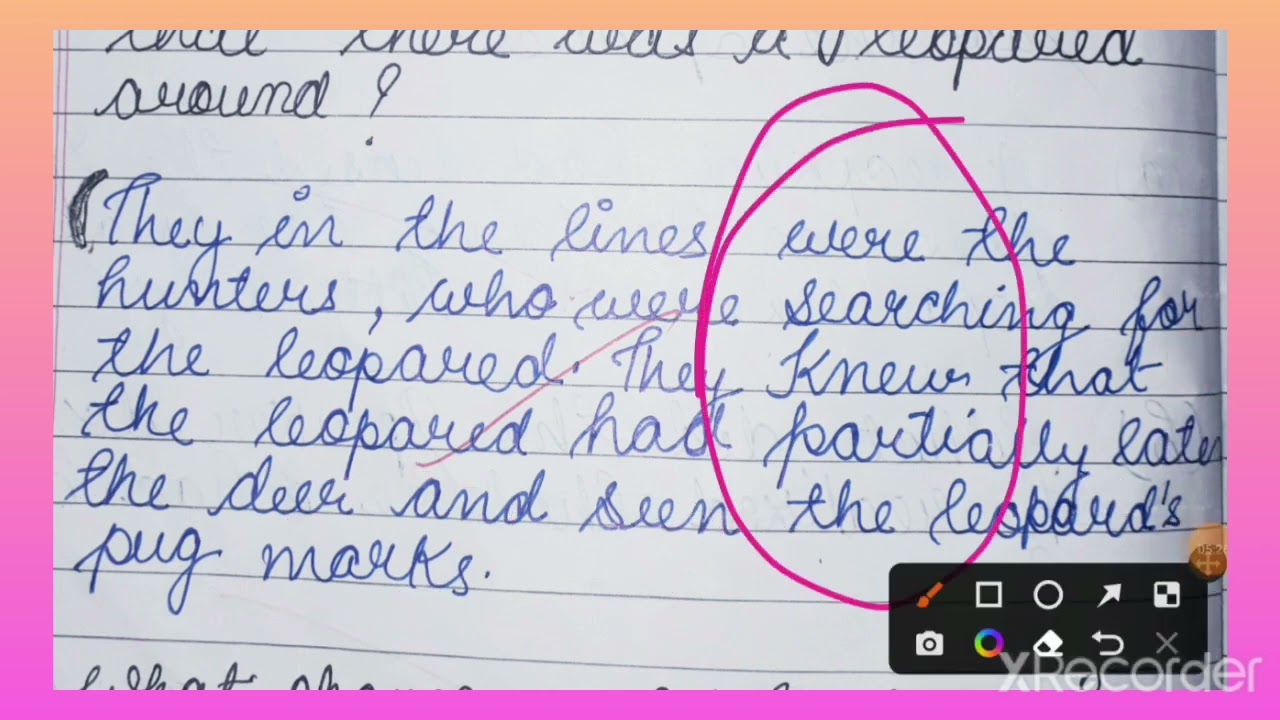 that there was a leopared
around ?
They in the lines were the
hunters, who were searching for
the leopared. They Knew that
the leopared had partially eaten
the deer and seen the leopard's
pug marks.
What
05:26
XRecorder